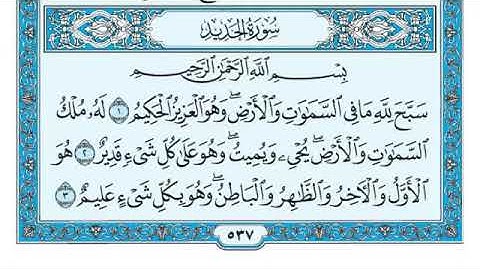 سُورَةُ الحَدِيدِ
بِسْمِ اللَّهِ الرَّحْمَٰنِ الرَّحِيمِ
سَبَّحَ لِلَّهِ مَا فِي السَّمَٰوَٰتِ وَالْأَرْضِ ۖ وَهُوَ الْعَزِيزُ الْحَكِيمُ ١ لَهُۥ مُلْكُ
السَّمَٰوَٰتِ وَالْأَرْضِ ۖ يُحْيِۦ وَيُمِيتُ ۖ وَهُوَ عَلَىٰ كُلِّ شَيْءٍ قَدِيرٌ ٢ هُوَ
الْأَوَّلُ وَالْآخِرُ وَالظَّٰهِرُ وَالْبَاطِنُ ۖ وَهُوَ بِكُلِّ شَيْءٍ عَلِيمٌ ٣
٥٣٧